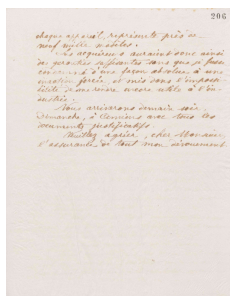 206
chaque appareil représente près de
neuf mille mobiles.
Je acquiers autant donc ainsi
de garanties suffisantes sans que je fusse
condamné d'une façon absolue à une
inaction forcée, et mis dans l'impossi-
bilité de me rendre encore utile à l'in-
dustrie.
Nous arriverons demain soir
Dimanche, à Amiens avec tous les
documents justificatifs
Veuillez agréer, cher Monsieur,
l'assurance de tout mon dévouement